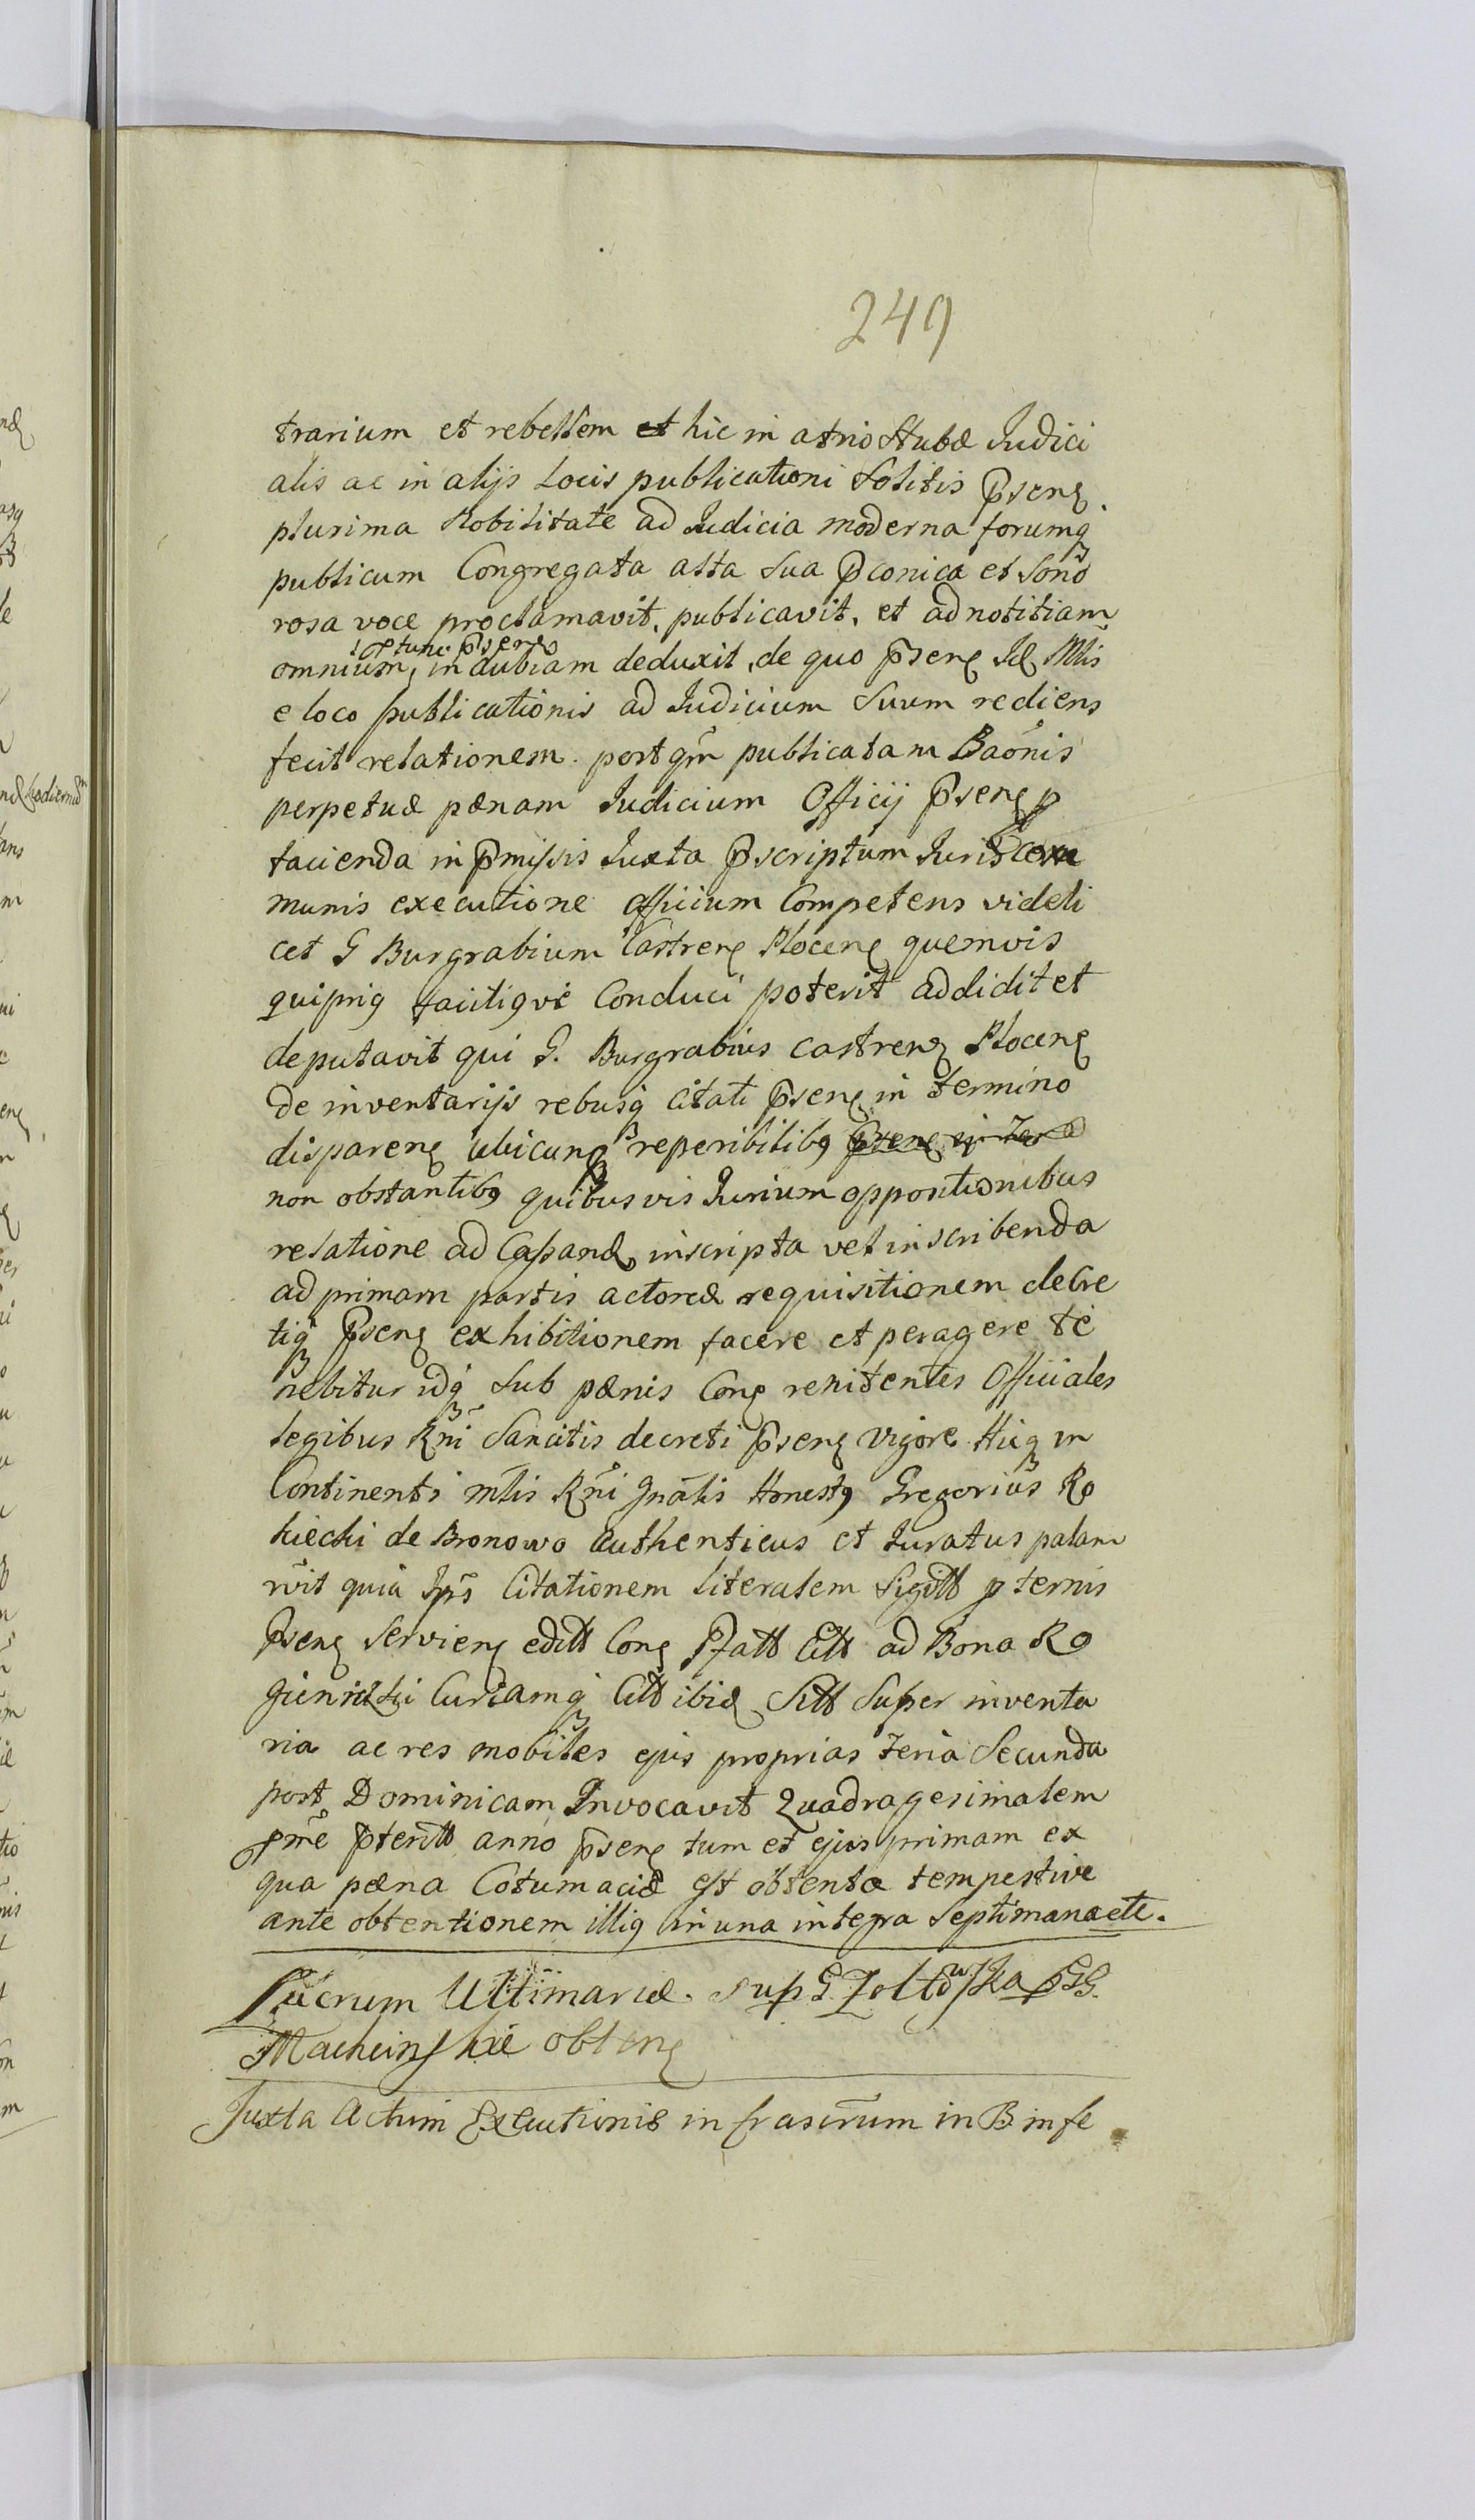 249
trarium et rebellem et hic in atrio Stubæ Judici
alis ac in alijs Locis publicationi Solitis Pñseng
plurima Nobilitate ad Judicia moderna forumq
publicum Congregata alta Sua Pconica et Sono
rosa voce proclamavit, publicavit, et ad notitiam
optunc Pñseng
omnium, indubiam deduxit, de quo Pñseng Jd Mlis
e loco publicationis ad Judicium Suum rediens
fecit relationem. post qm̃ publicatam Baõnis
perpetuæ pænam Judicium Officij Pñseng p
facienda in Pmissis Juxta Pscriptum Juris Com
munis executione officium Competens videli
cet G Burgrabium Castreng Ploceng quemvis
qui prig facitigve Conduci poterit addidit et
deputavit qui G. Burgrabius castreng Ploceng
de inventarijs rebusq citati Pñseng in termino
dispareng ubicunq reperibilibg
non obstantibg quibusvis Jurium oppositionibus
relatione ad Cassand inscripta vel inscribenda
ad primam partis actoreæ requisitionem decre
tiq Pñseng exhibitionem facere et peragere te
nebitur idq Sub pænis Cong renitentes Officiales
legibus Rñi Sancitis decreti Pñseng vigore Hicq in
Continenti mlis Rñi Gnãlis Honestg Gregorius Ro
kiecki de Bronowo authenticus et Juratus palam
rõit quia Jps Citationem literalem Sigill p ternis
Pñseng Servieng editt Cong Pfatt Citt ad Bona Ro
Curiamq Citt ibid Sitt Super inventa
ria ac res mobiles ejus proprias feria Secunda
post Dominicam Invocavit Quadragesimalem
pm̃e Pteritt anno Pñseng tum et ejus primam ex
qua pæna Cotumaciæ est obtenta tempestive
ante obtentionem illig in una integra Septimana ete.
Lucrum Ultimariæ. sup G. Zoltowska p GG.
Machcinskie obteng
Juxta Actum Executionis infrascrũm in B. infe